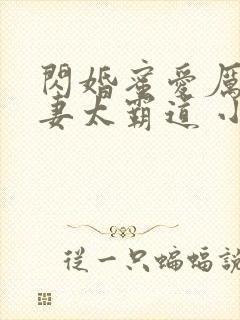 閃婚蜜愛厲
妻太霸道 小
從一只蝙蝠說